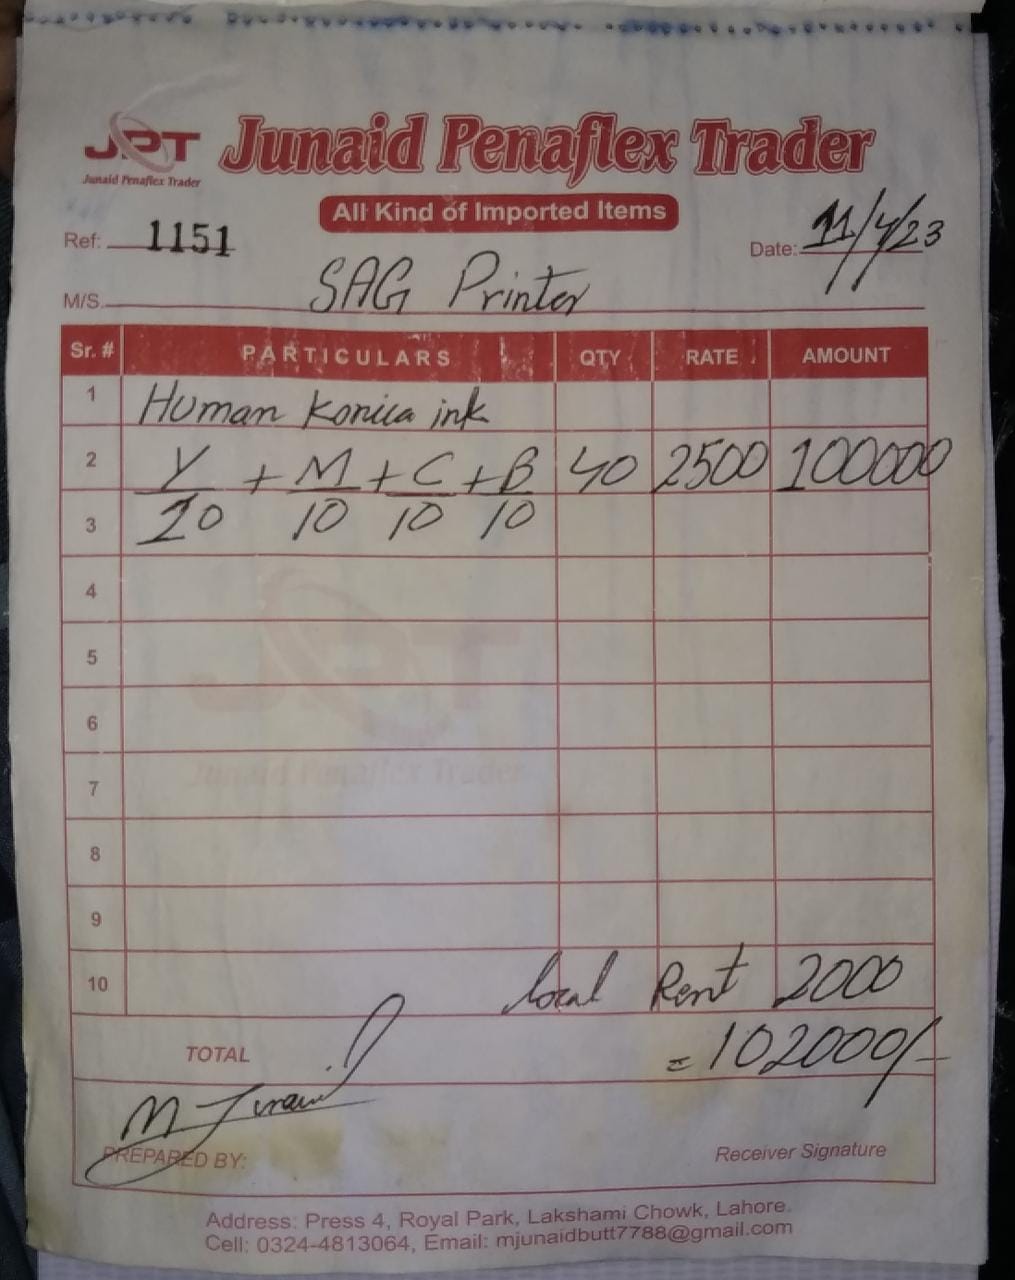 JPT Junaid Penaflex Trader
Junaid Penaflex Trader
All Kind of Imported Items
Ref: 1151 Date: 11/4/23
M/S. SAG Printer
Sr. # PARTICULARS QTY RATE AMOUNT
1 Human Konica ink
2 Y + M + C + B 40 2500 100000
3 10 10 10 10
4
5
6
7
8
9
10 local Rent 2000
TOTAL = 102000/-
M Junaid
PREPARED BY: Receiver Signature
Address: Press 4, Royal Park, Lakshami Chowk, Lahore.
Cell: 0324-4813064, Email: mjunaidbutt7788@gmail.com
JPT
Junaid Penaflex Trader